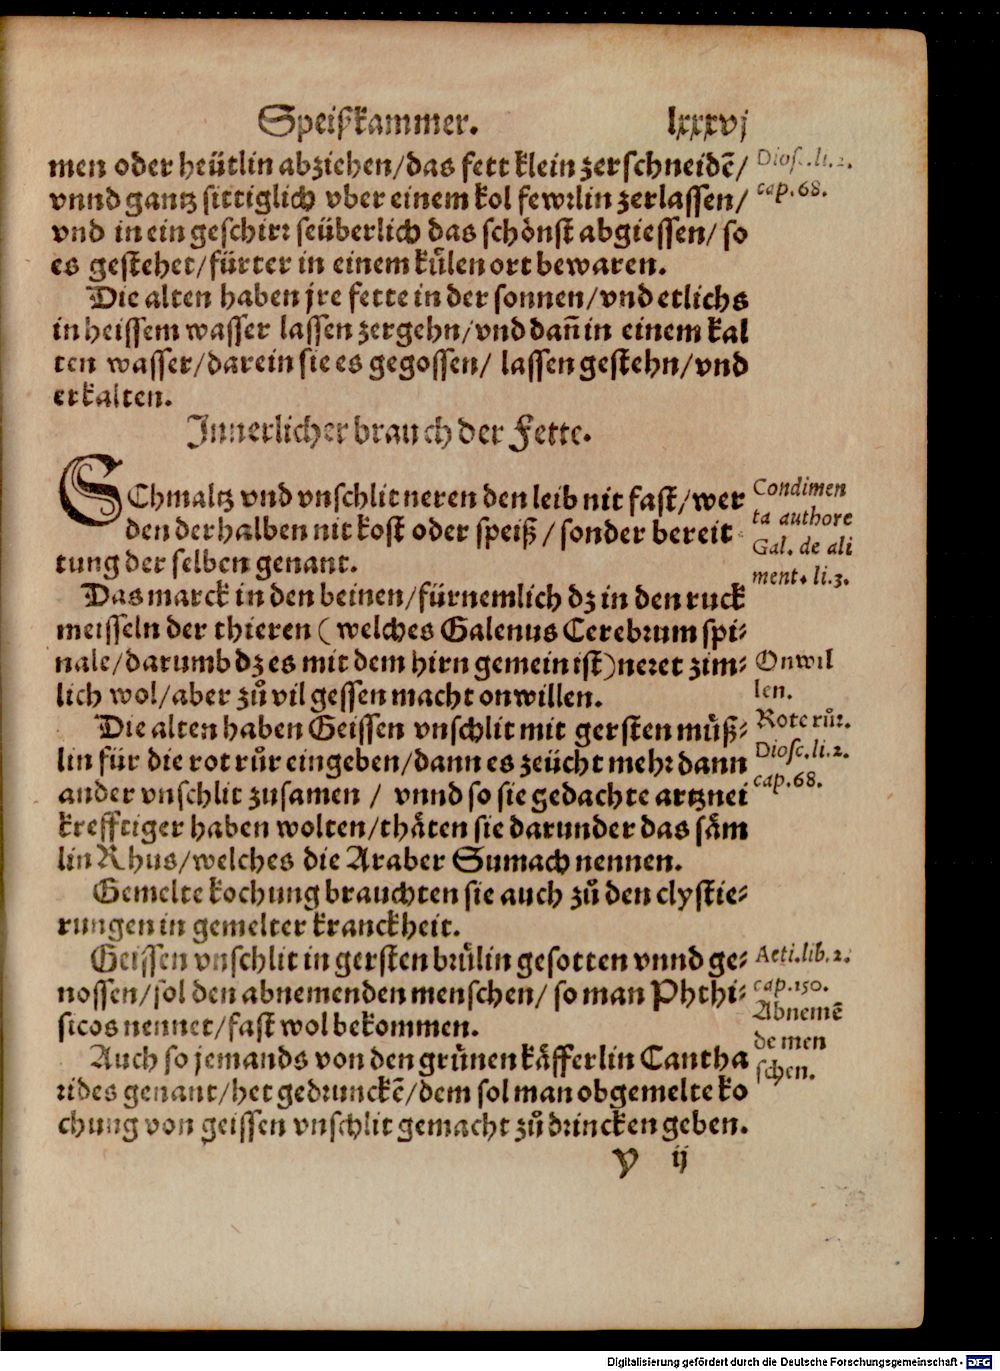 Speißkammer. lxxxvj
men oder heütlin abziehen/das fett klein zerschneidẽ/
vnnd gantz sittiglich vber einem kol fewrlin zerlassen/
vnd in ein geschirr seüberlich das schönst abgiessen/ so
es gestehet/fürter in einem kůlen ort bewaren.
Diosc. li. 2.
cap. 68.
Die alten haben jre fette in der sonnen/vnd etlichs
in heissem wasser lassen zergehn/vnd dañ in einem kal
ten wasser/darein sie es gegossen/ lassen gestehn/vnd
erkalten.
Innerlicher brauch der Fette.
SChmaltz vnd vnschlit neren den leib nit fast/wer
den derhalben nit kost oder speiß/sonder bereit
tung der selben genant.
Condimen
ta authore
Gal. de ali
ment. li. 3.
Das marck in den beinen/fürnemlich dz in den ruck
meisseln der thieren (welches Galenus Cerebrum spi-
nale/darumb dz es mit dem hirn gemein ist) neret zim-
lich wol/aber zů vil gessen macht onwillen.
Onwil
len.
Die alten haben Geissen vnschlit mit gersten můß-
lin für die rot růr eingeben/dann es zeücht mehr dann
ander vnschlit zusamen / vnnd so sie gedachte artznei
krefftiger haben wolten/thäten sie darunder das säm
lin Rhus/welches die Araber Sumach nennen.
Rote růr.
Diosc. li. 2.
cap. 68.
Gemelte kochung brauchten sie auch zů den clystie-
rungen in gemelter kranckheit.
Geissen vnschlit in gersten brůlin gesotten vnnd ge-
nossen/sol den abnemenden menschen/ so man Phthi-
sicos nennet/fast wol bekommen.
Aeti. lib. 2.
cap. 150.
Abnemẽ
de men
schen.
Auch so jemands von den grůnen käfferlin Cantha
rides genant/het gedrunckẽ/dem sol man obgemelte ko
chung von geissen vnschlit gemacht zů drincken geben.
y ij
Digitalisierung gefördert durch die Deutsche Forschungsgemeinschaft - DFG